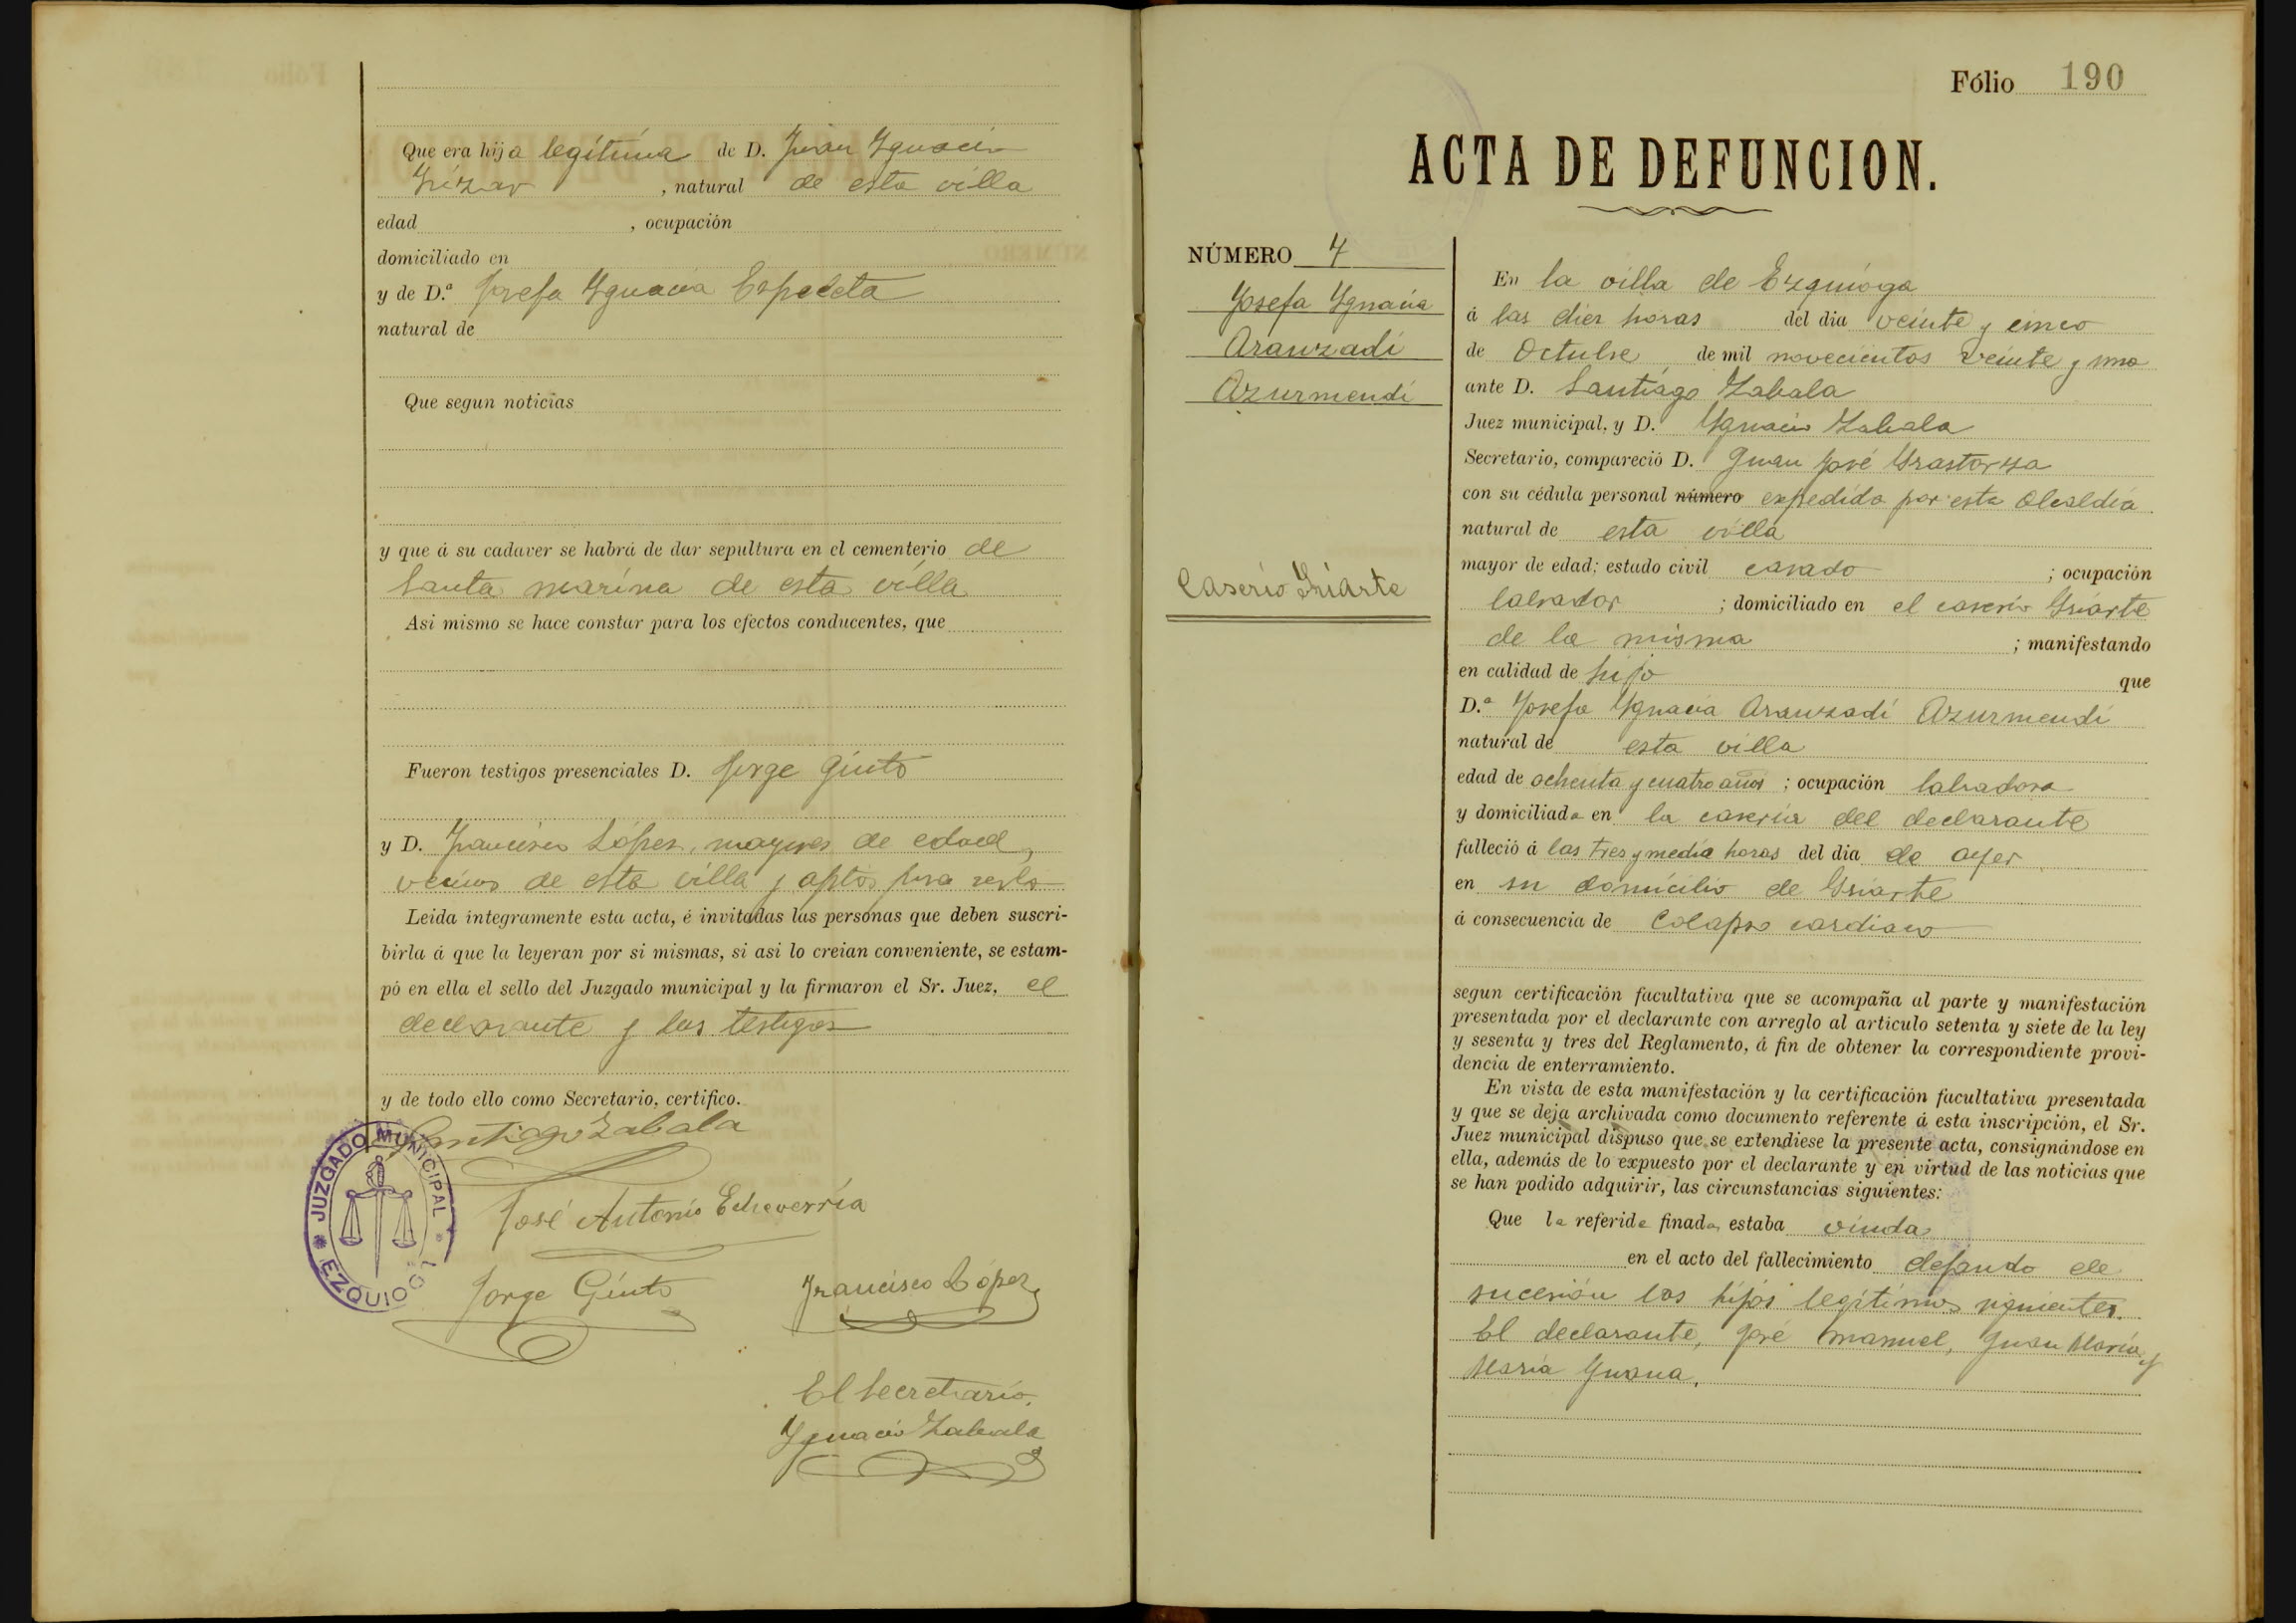 Que era hija legítima de D. Juan Ygnacio
Irízar, natural de esta villa
edad , ocupación
domiciliado en
y de D.ª Josefa Ygnacia Ezpeleta
natural de
Que segun noticias
y que á su cadaver se habrá de dar sepultura en el cementerio de
Santa marina de esta villa
Asi mismo se hace constar para los efectos conducentes, que
Fueron testigos presenciales D. Jorge Guito
y D. Francisco López, mayores de edad,
vecinos de esta villa y aptos para serlo
Leida íntegramente esta acta, é invitadas las personas que deben suscri-
birla á que la leyeran por si mismas, si asi lo creian conveniente, se estam-
pó en ella el sello del Juzgado municipal y la firmaron el Sr. Juez, el
declarante y los testigos
y de todo ello como Secretario, certifico.
Santiago Zabala
JUZGADO MUNICIPAL
EZQUIOGA
José Antonio Echeverría
Jorge Guito
Francisco López
El Secretario,
Ygnacio Zabala
Fólio 190
ACTA DE DEFUNCION.
NÚMERO 7
Josefa Ygnacia
Aranzadi
Azurmendi
Caserío Iriarte
En la villa de Ezquioga
á las diez horas del dia veinte y cinco
de Octubre de mil novecientos veinte y uno
ante D. Santiago Zabala
Juez municipal, y D. Ygnacio Zabala
Secretario, compareció D. Juan José Urastorza
con su cédula personal número expedida por esta Alcaldía
natural de esta villa
mayor de edad; estado civil casado ; ocupación
labrador ; domiciliado en el caserío Iriarte
de la misma ; manifestando
en calidad de hijo que
D.ª Josefa Ygnacia Aranzadi Azurmendi
natural de esta villa
edad de ochenta y cuatro años ; ocupación labradora
y domiciliada en la casería del declarante
falleció á las tres y media horas del dia de ayer
en su domicilio de Iriarte
á consecuencia de Colapso cardiaco
segun certificación facultativa que se acompaña al parte y manifestación
presentada por el declarante con arreglo al articulo setenta y siete de la ley
y sesenta y tres del Reglamento, á fin de obtener la correspondiente provi-
dencia de enterramiento.
En vista de esta manifestación y la certificación facultativa presentada
y que se deja archivada como documento referente á esta inscripción, el Sr.
Juez municipal dispuso que se extendiese la presente acta, consignándose en
ella, además de lo expuesto por el declarante y en virtud de las noticias que
se han podido adquirir, las circunstancias siguientes:
Que la referida finada estaba viuda
en el acto del fallecimiento dejando de
sucesión los hijos legítimos siguientes.
El declarante, José Manuel, Juan María y
María Juana.